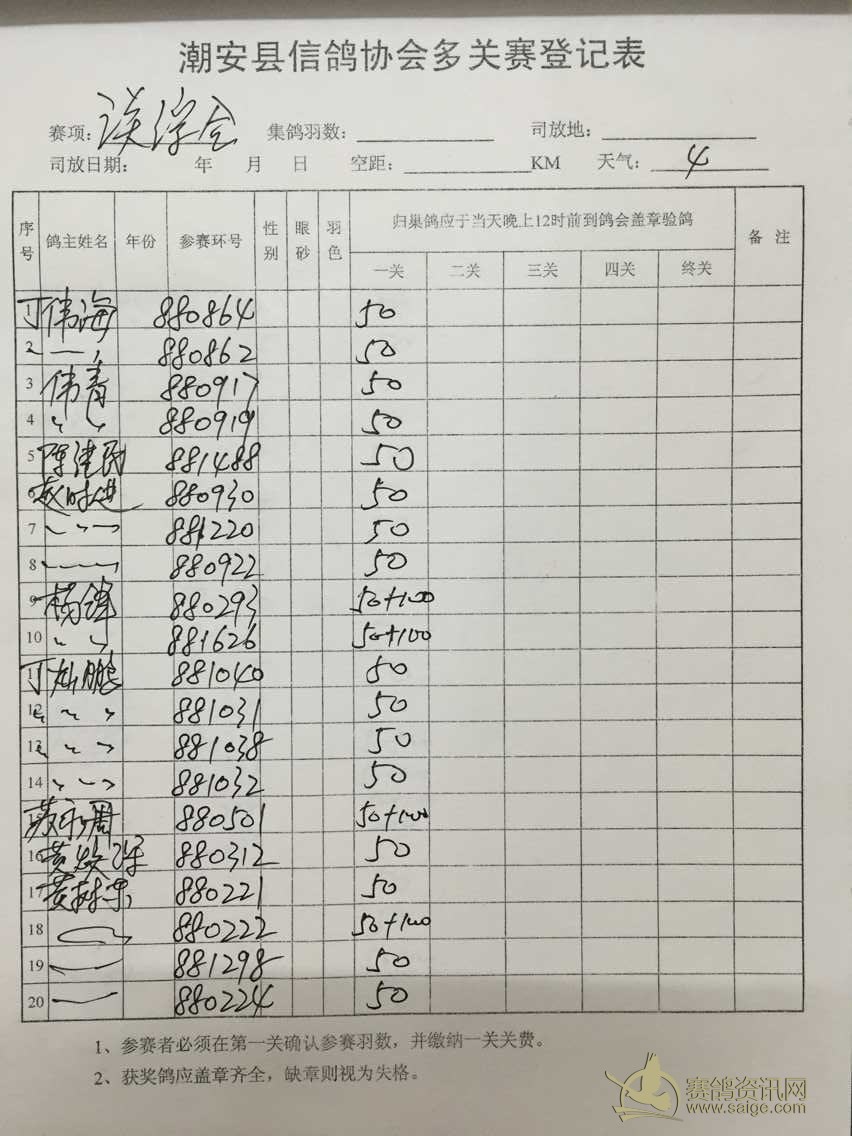 潮安县信鸽协会多关赛登记表
赛项: 集鸽羽数: 司放地:
司放日期: 年 月 日 空距: KM 天气: 4
序号 鸽主姓名 年份 参赛环号 性别 眼砂 羽色 归巢鸽应于当天晚上12时前到鸽会盖章验鸽 备 注
一关 二关 三关 四关 终关
1 丁伟海 880864 50
2 880862 50
3 伟青 880917 50
4 〃 880919 50
5 陈建民 881488 50
6 880930 50
7 881220 50
8 880922 50
9 杨锋 880293 50+100
10 〃 881626 50+100
11 丁灿鹏 881040 50
12 〃 881031 50
13 〃 881038 50
14 〃 881032 50
15 苏永周 880501 50+100
16 880312 50
17 880221 50
18 880222 50+100
19 881298 50
20 880224 50
1、参赛者必须在第一关确认参赛羽数，并缴纳一关关费。
2、获奖鸽应盖章齐全，缺章则视为失格。
赛鸽资讯网
www.saige.com